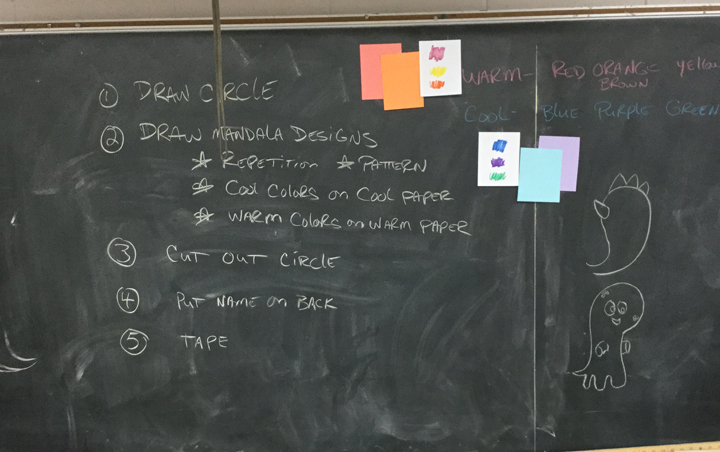 ① DRAW CIRCLE
② DRAW MANDALA DESIGNS
☆ REPETITION ☆ PATTERN
☆ COOL COLORS ON COOL PAPER
☆ WARM COLORS ON WARM PAPER
③ CUT OUT CIRCLE
④ PUT NAME ON BACK
⑤ TAPE
WARM- RED ORANGE YELLOW
BROWN
COOL- BLUE PURPLE GREEN